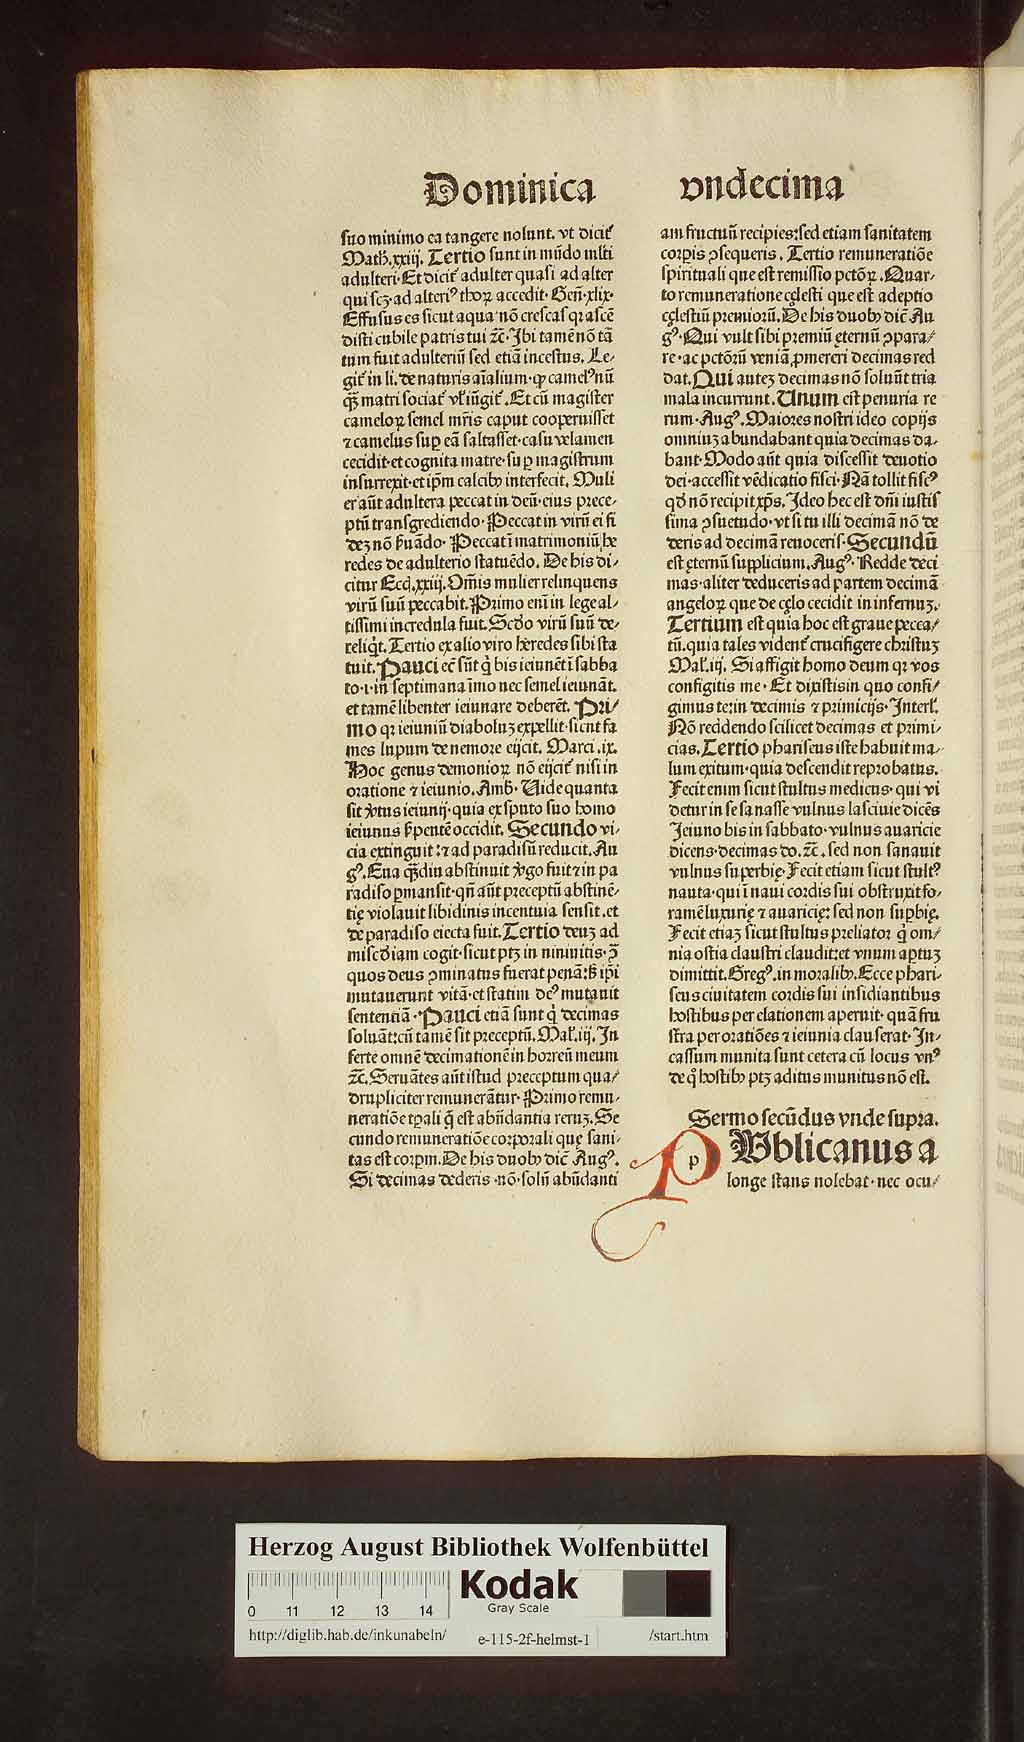 Dominica vndecima
suo minimo ea tangere nolunt. vt dicit᷑
Math̄. xxiij. Tertio sunt in mūdo mlti
adulteri. Et dicit᷑ adulter quasi ad alter
qui scꝫ ad alteriꝰ thoꝝ accedit. Geñ. xlix.
Effusus es sicut aqua nō crescas qr ascē
disti cubile patris tui ⁊c̄. Ibi tamē nō tā
tum fuit adulteriū sed etiā incestus. Le-
git᷑ in li. de naturis aīalium. qꝙ camelꝰ nū
qꝫ̄ matri sociat᷑ vl̓ iūgit᷑. Et cū magister
cameloꝝ semel mr̄is caput cooperuisset
⁊ camelus suꝑ eā saltasset. casu velamen
cecidit. et cognita matre. suꝑ magistrum
insurrexit. et ip̄m calcibꝰ interfecit. Muli
er aūt adultera peccat in deū. eius prece-
ptū transgrediendo. Peccat in virū ei fi
deꝫ nō ẜuādo. Peccat ī matrimoniū he
redes de adulterio statuēdo. De his di-
citur Eccī. xxiij. Om̄is mulier relinquens
virū suū peccabit. Primo enī in lege al-
tissimi incredula fuit. Scd̓o virū suū de-
reliqͥt. Tertio ex alio viro heredes sibi sta
tuit. Pauci ec̄ sūt qͥ bis ieiunēt ī sabba
to .i. in septimana īmo nec semel ieiunāt.
et tamē libenter ieiunare deberēt. Pri-
mo qr ieiuniū diaboluꝫ expellit. sicut fa
mes lupum de nemore eijcit. Marci. ix.
Hoc genus demonioꝝ nō eijcit᷑ nisi in
oratione ⁊ ieiunio. Amb̄. Uide quanta
sit v̓tus ieiunij. quia ex sputo suo homo
ieiunus ẜpentē occidit. Secundo vi-
cia extinguit: ⁊ ad paradisū reducit. Au
gꝰ. Eua qꝫ̄diu abstinuit v̓go fuit ⁊ in pa
radiso ꝑmansit. qñ aūt preceptū abstinē-
tię violauit libidinis incentuia sensit. et
de paradiso eiecta fuit. Tertio deuꝫ ad
misc̄diam cogit. sicut ptꝫ in niniuitis. ꝯ̄
quos deus ꝯminatus fuerat penā: ẜ ip̄i
mutauerunt vitā. et statim deꝰ mutauit
sententiā. Pauci etiā sunt qͥ decimas
soluāt: cū tamē sit preceptū. Mal̓. iij. In
ferte omnē decimationē in horreū meum
⁊c̄. Seruātes aūt istud preceptum qua-
drupliciter remunerātur. Primo remu-
neratiōe tꝑali q̄ est abūdantia reruꝫ. Se
cundo remuneratiōe corporali quę sani-
tas est corꝑm. De his duobꝰ dic̄ Augꝰ.
Si decimas dederis. nō. solū abūdanti
am fructuū recipies: sed etiam sanitatem
corꝑis ꝯsequeris. Tertio remuneratiōe
spirituali que est remissio pctōꝝ. Quar-
to remuneratione cęlesti que est adeptio
cęlestiū premiorū. De his duobꝰ dic̄ Au
gꝰ. Qui vult sibi premiū ęternū ꝯpara-
re. ac pctōrū veniā ꝓmereri decimas red
dat. Qui auteꝫ decimas nō soluūt tria
mala incurrunt. Unum est penuria re
rum. Augꝰ. Maiores nostri ideo copijs
omniuꝫ abundabant quia decimas da-
bant. Modo aūt quia discessit deuotio
dei. accessit vēdicatio fisci. Nā tollit fiscꝰ
qd̓ nō recipit xp̄s. Ideo hec est dn̄i iustis
sima ꝯsuetudo. vt si tu illi decimā nō de
deris ad decimā reuoceris. Secundū
est ęternū supplicium. Augꝰ. Redde deci
mas. aliter deduceris ad partem decimā
angeloꝝ que de cęlo cecidit in infernuꝫ.
Tertium est quia hoc est graue pecca-
tū. quia tales vident᷑ crucifigere christuꝫ
Mal̓. iij. Si affigit homo deum qr vos
configitis me. Et dixistis in quo confi-
gimus te: in decimis ⁊ primicijs. Interl̓.
Nō reddendo scilicet decimas et primi-
cias. Tertio phariseus iste habuit ma-
lum exitum. quia descendit reprobatus.
Fecit enim sicut stultus medicus. qui vi
detur in se sanasse vulnus lasciuie dicēs
Ieiuno bis in sabbato. vulnus auaricie
dicens. decimas do. ⁊c̄. sed non sanauit
vulnus superbię. Fecit etiam sicut stultꝰ
nauta. qui ī naui cordis sui obstruxit fo-
ramē luxurię ⁊ auaricię: sed non suꝑbię.
Fecit etiaꝫ sicut stultus preliator qͥ om-
nia ostia claustri claudit: et vnum aꝑtuꝫ
dimittit. Gregꝰ. in moralibꝰ. Ecce phari-
seus ciuitatem cordis sui insidiantibus
hostibus per elationem aperuit. quā fru
stra per oratiōes ⁊ ieiunia clauserat. In-
cassum munita sunt cetera cū locus vnꝰ
de qͦ hostibꝰ ptꝫ aditus munitus nō est.
Sermo secūdus vnde supra.
PUblicanus a
longe stans nolebat. nec ocu-
Herzog August Bibliothek Wolfenbüttel
0 11 12 13 14
Kodak
Gray Scale
http://diglib.hab.de/inkunabeln/ e-115-2f-helmst-1 /start.htm